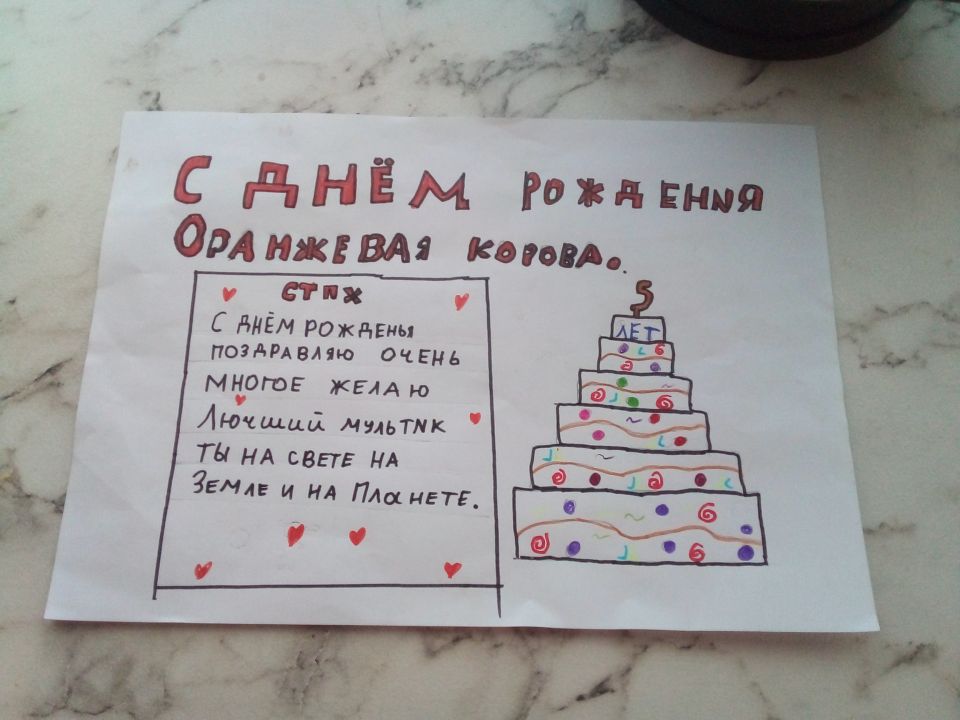 С ДНЁМ РОЖДЕНИЯ
ОРАНЖЕВАЯ КОРОВА.
СТПХ
С ДНЁМ РОЖДЕНЬЯ
ПОЗДРАВЛЯЮ ОЧЕНЬ
МНОГОЕ ЖЕЛАЮ
Лючший мультик
ТЫ НА СВЕТЕ НА
Земле и на Планете.
5
ЛЕТ